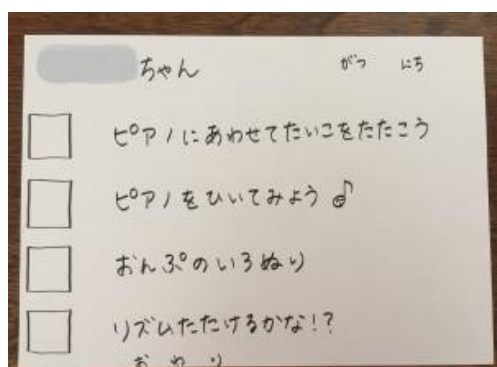 ちゃん　がつ　にち
ピアノにあわせてたいこをたたこう
ピアノをひいてみよう♪
おんぷのいろぬり
リズムたたけるかな!?
おわり